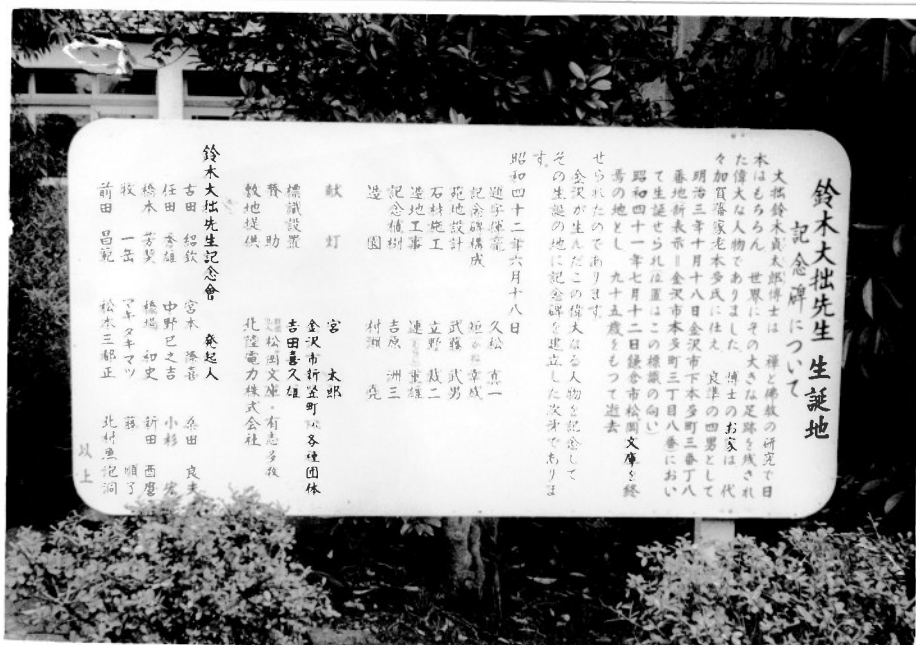 鈴木大拙先生 生誕地
記念碑について
大拙鈴木貞太郎博士は 禅と佛教の研究で日
本はもちろん 世界にその大きな足跡を残され
た偉大な人物でありました 博士のお家は 代
々加賀藩家老本多氏に仕え 良準の四男として
明治三年十月十八日金沢市下本多町三番丁八
番地新表示=金沢市本多町三丁目八番におい
て生誕せられ位置はこの標識の向い
昭和四十一年七月十二日鎌倉市松岡文庫を終
焉の地とし 九十五歳をもつて逝去
せられたのであります
金沢が生んだこの偉大なる人物を記念して
その生誕の地に記念碑を建立した次第でありま
す
昭和四十二年六月十八日
題字揮毫 久松 真一
記念碑構成 垣 幸成
苑地設計 武藤 武男
石材施工 立野 裁二
造地工事 連 重雄
記念植樹 吉原 洲三
造 園 村淵 尭
献 灯 宮 太郎
標識設置 金沢市新竪町校下各種団体 吉田喜久雄
賛 助 松岡文庫・有志多数
敷地提供 北陸電力株式会社
鈴木大拙先生記念會 発起人
古田 紹欽 宮本 桑田 良夫
任田 中野巳之吉 小杉
橋本 芳契 橋場 和史 新田
牧 一岳 マキタキマツ 藤 順了
前田 昌範 松本三都正 北村魚泡洞
以上